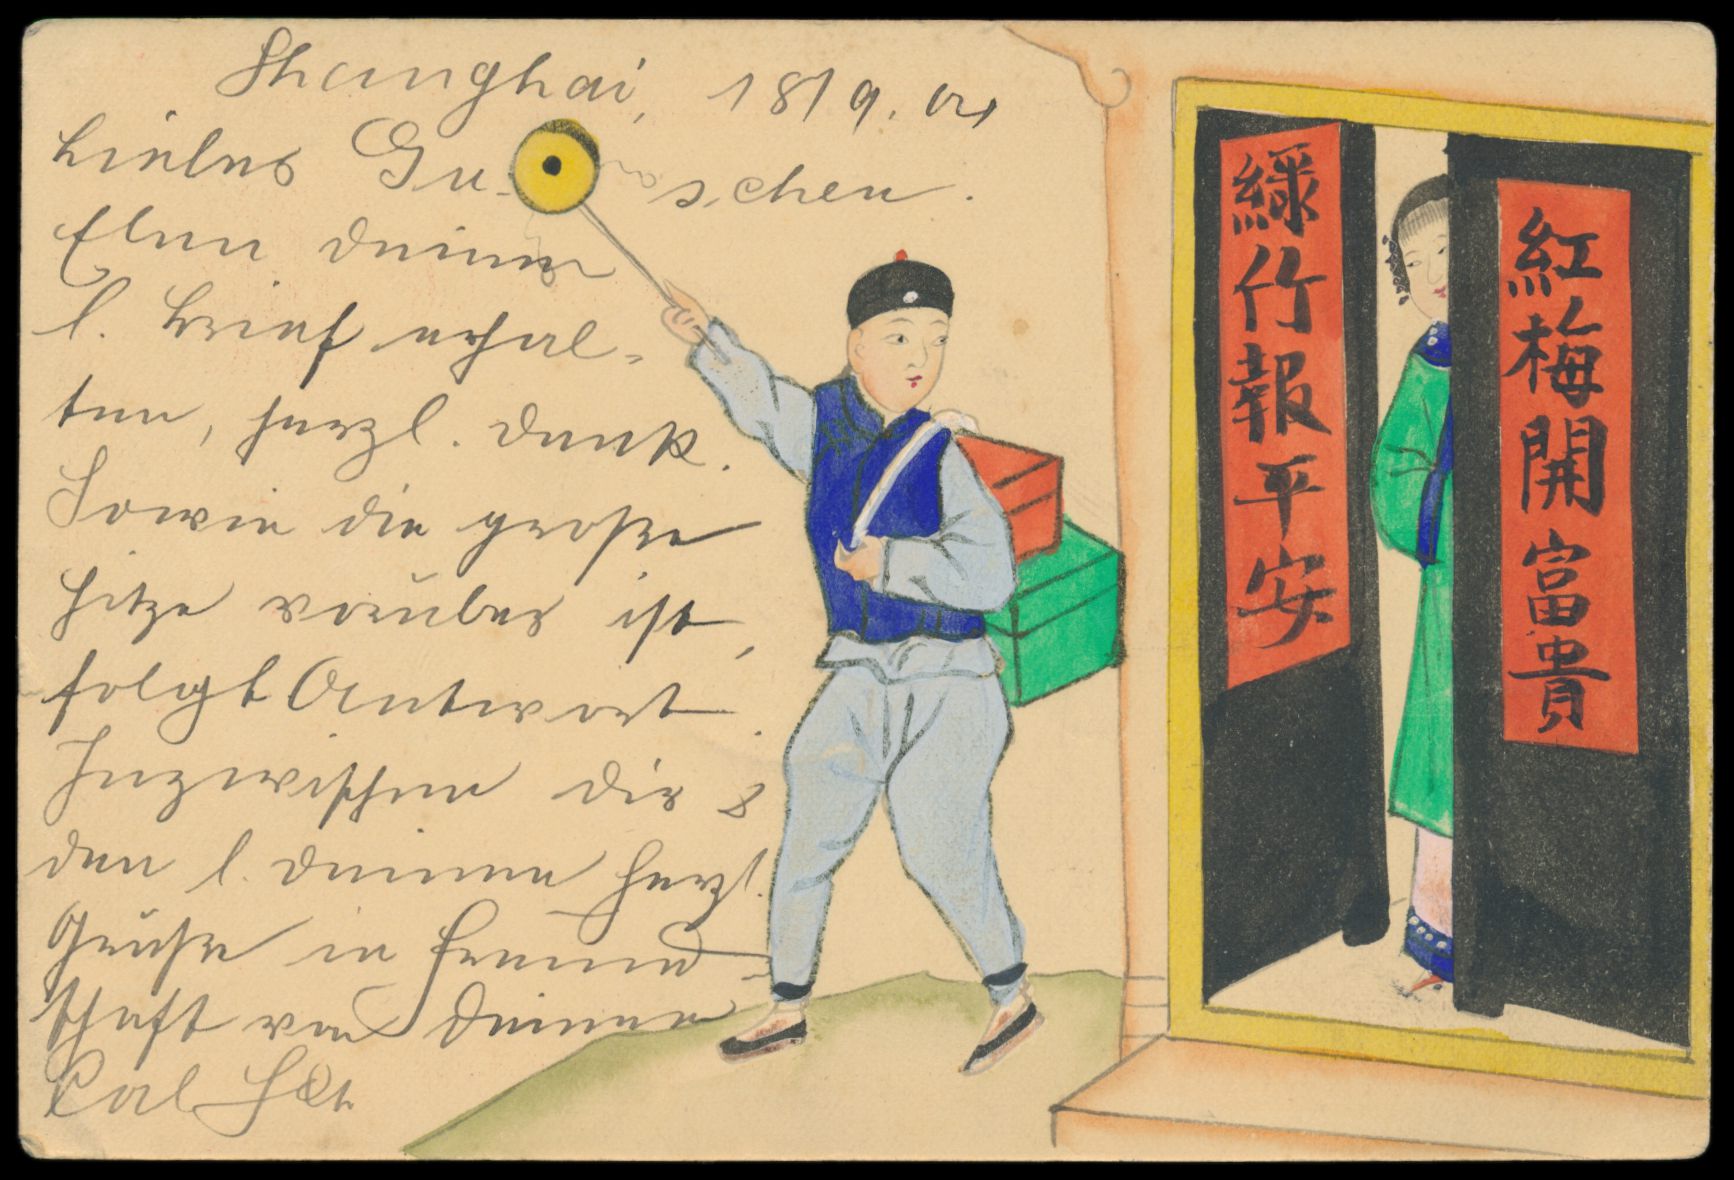 Shanghai, 18/9. 04
Liebes Gu-schen.
Eben deinen
l. Brief erhal-
ten, herzl. Dank.
Sowie die große
Hitze vorüber ist,
folgt Antwort.
Inzwischen dir &
den l. deinen herzl.
Grüße in Freund-
schaft von deinem
綠竹報平安
紅梅開富貴